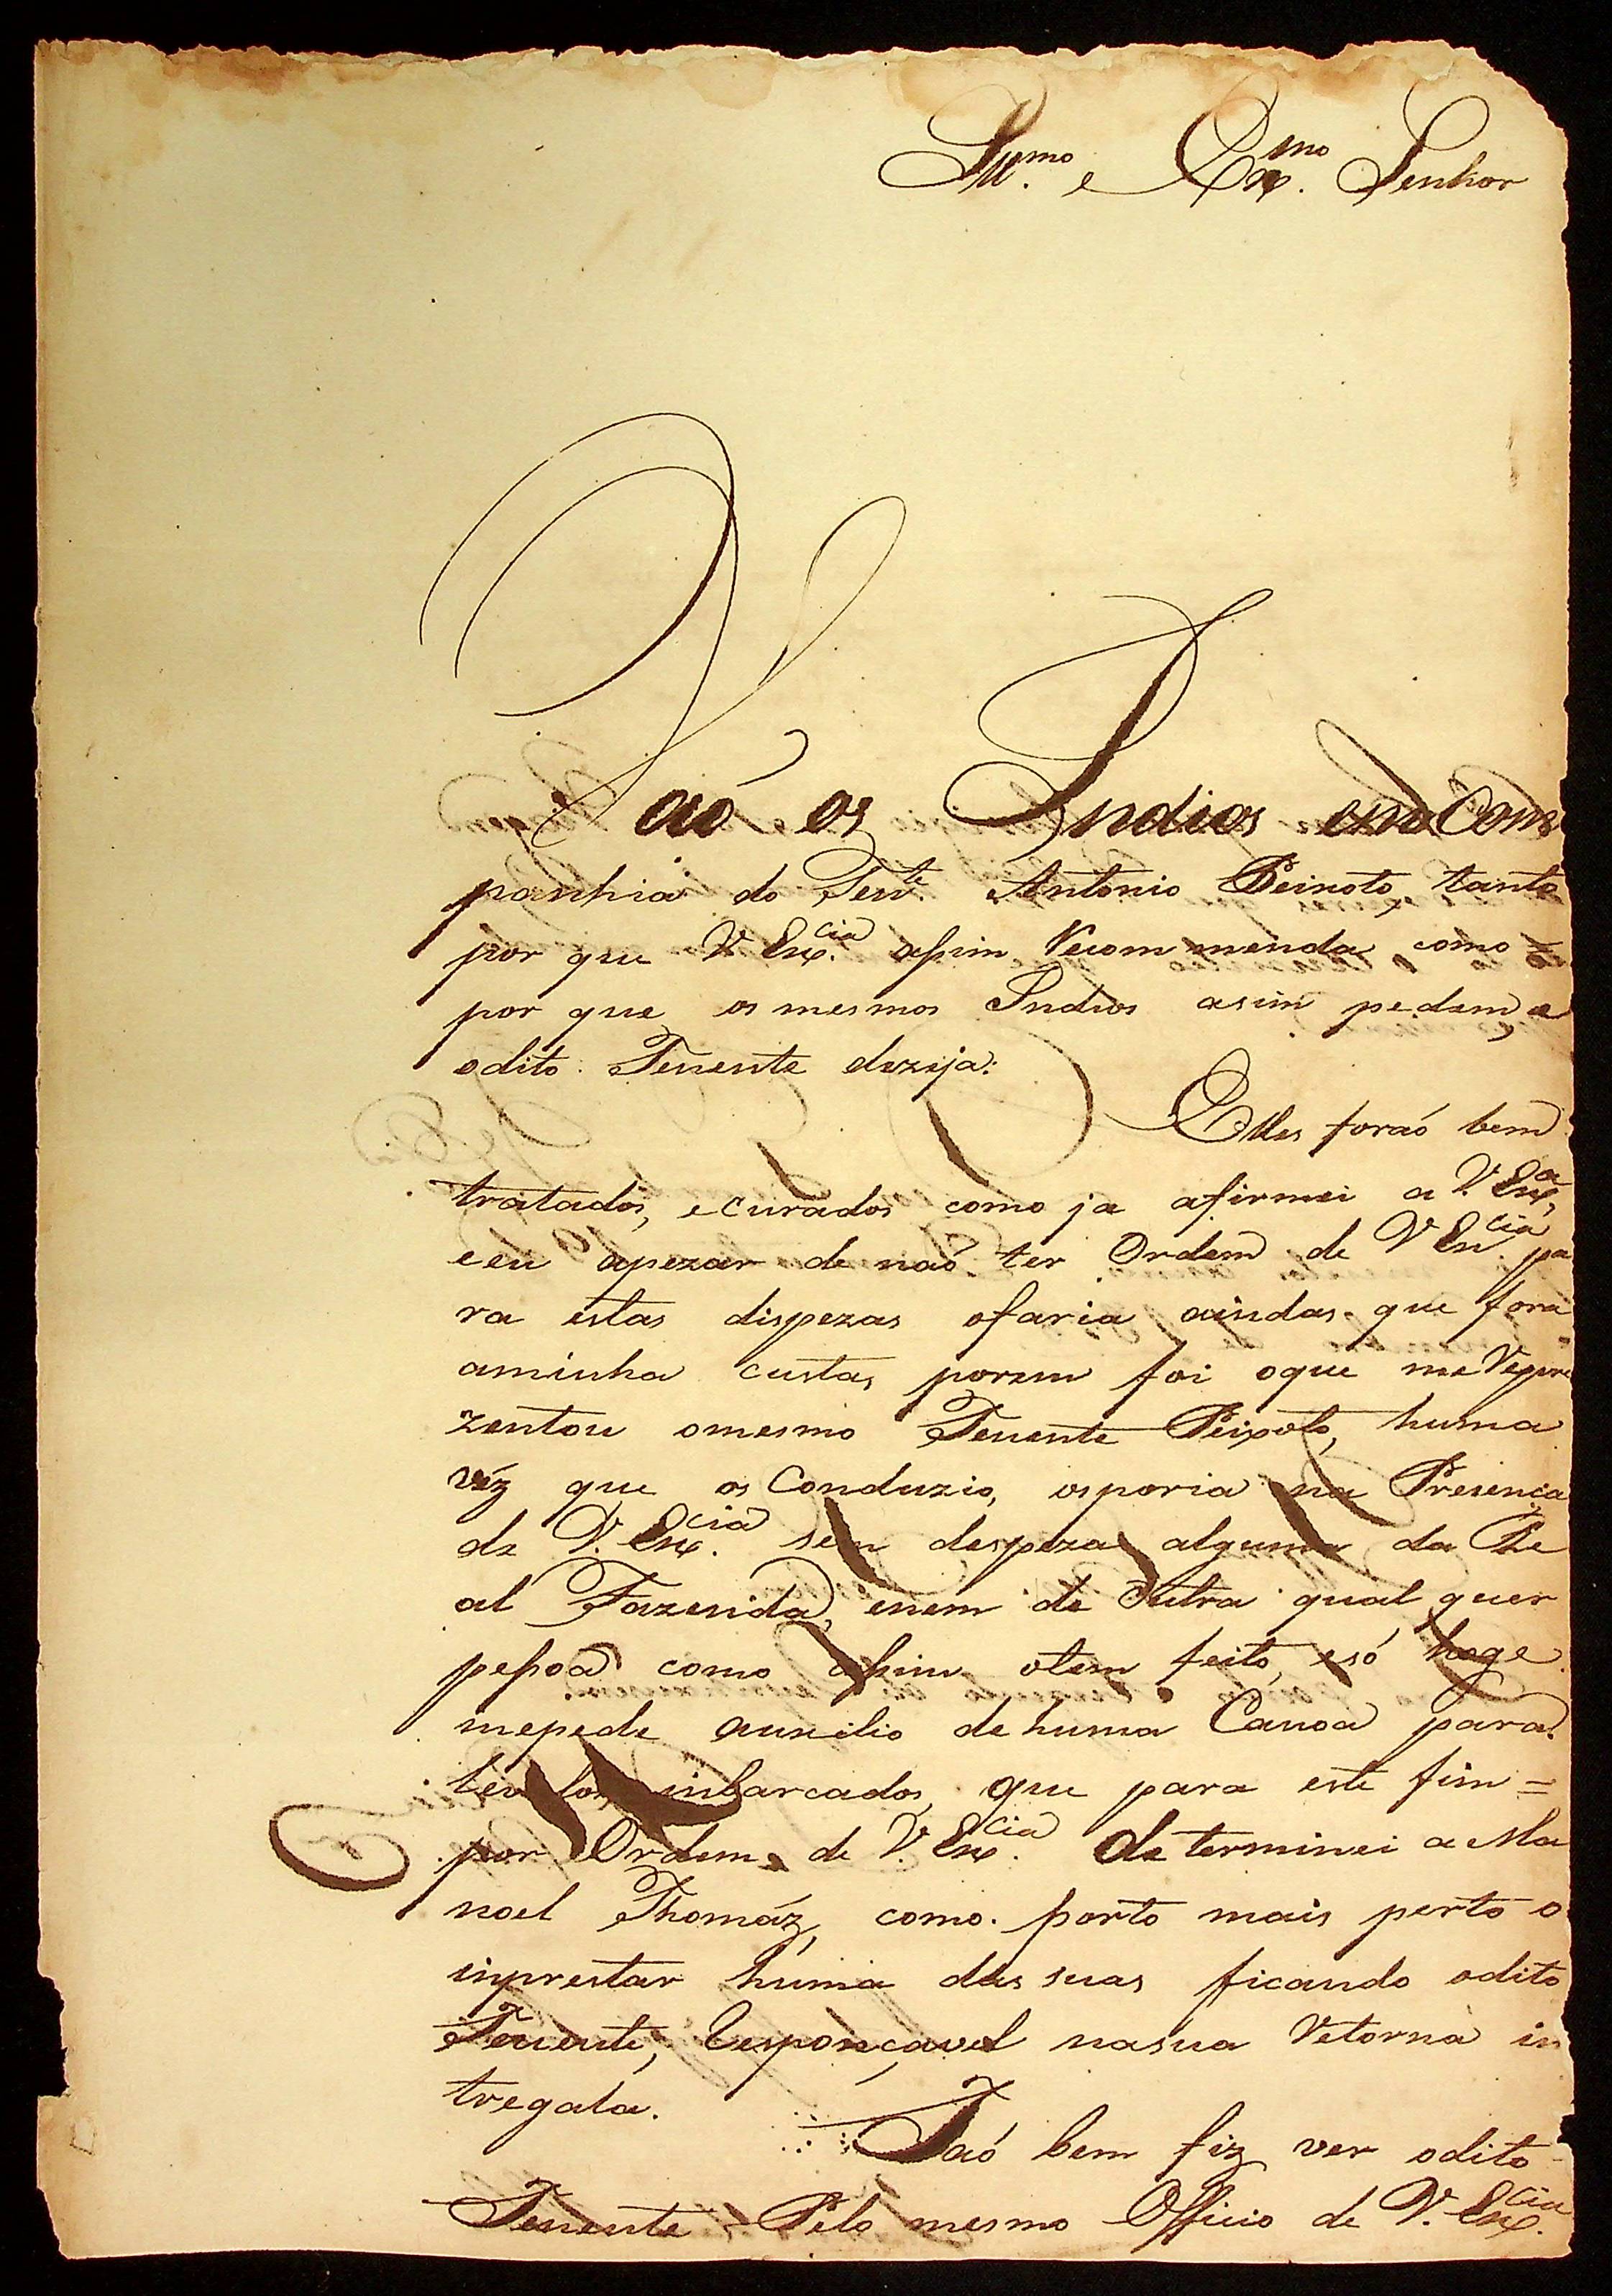 Ill.mo e Ex.mo Senhor
Vaó os Indios em Com
panhia do Ten.te Antonio Peixoto, tanto
por que V. Ex.cia assim Recommenda, como =
por que os mesmos Indios asim pedem, e
odito Tenente dezeja:
Elles foraó bem
tratados, ecurados como ja afirmei a V. Ex.a,
eeu apezar de naó ter Ordem de V. Ex.cia pa
ra estas dispezas ofaria aindas que fora
aminha custas, porem foi oque me Repre
zentou omesmo Tenente Peixoto, huma
vez que os Conduzio, osporia na Presença
de V. Ex.cia sem despeza alguma da Re
al Fazenda, enem de Outra qual quer
pessoa como assim otem feito, esó hoge
mepede auxilio de huma Canoa para
levalos inbarcados, que para este fim =
por Ordem de V. Ex.cia determinei a Ma
noel Thomáz, como porto mais perto o
inprestar huma das suas ficando odito
Tenente, Responçavel nasua Retorna in
tregala.
Taó bem fiz ver odito
Tenente Pelo mesmo Officio de V. Ex.cia